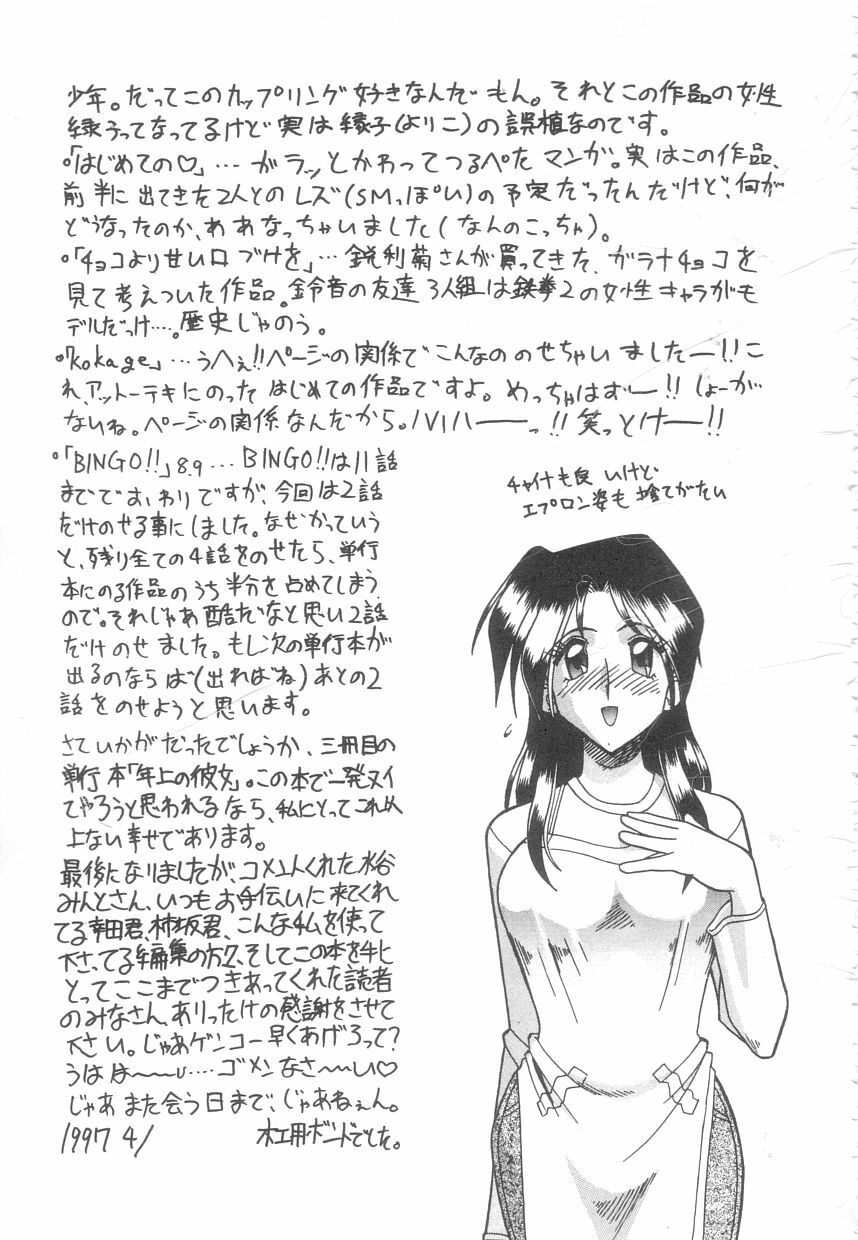 少年。だってこのカップリング好きなんだもん。それとこの作品の女性
縁ってなってるけど実は縁子(よりこ)の誤植なのです。
•「はじめての♡」…ガラッとかわってつるぺたマンガ。実はこの作品、
前半に出てきた2人とのレズ(SMっぽい)の予定だったんだけど、何が
どうなったのか、ああなっちゃいました(なんのこっちゃ)。
•「チョコより甘い口づけを」…鋭利菊さんが買ってきた、ガラナチョコを
見て考えついた作品。鈴音の友達3人組は鉄拳2の女性キャラがモ
デルだっけ…。歴史じゃのう。
•「kokage」…うへぇ!!ページの関係でこんなののせちゃいましたー!!こ
れ、アットーテキにのったはじめての作品ですよ。めっちゃはずー!!しょーが
ないね。ページの関係なんだから。ハ゛ハーーっ!!笑っとけー!!
•「BINGO!!」8.9…BINGO!!は11話
まででおわりですが、今回は2話
だけのせる事にしました。なぜかっていう
と、残り全ての4話をのせたら、単行
本にのる作品のうち半分を占めてしまう
ので。それじゃあ酷だなと思い2話
だけのせました。もし次の単行本が
出るのならば(出ればね)あとの2
話をのせようと思います。
さていかがだったでしょうか、三冊目の
単行本「年上の彼女」。この本で一発ヌイ
てやろうと思われるなら、私にとってこれ以
上ない幸せであります。
最後になりましたが、コメントくれた水谷
みんとさん、いつもお手伝いに来てくれ
てる幸田君、柿坂君、こんな私を使って
下さってる編集の方々、そしてこの本を手に
とってここまでつきあってくれた読者
のみなさん、ありったけの感謝をさせて
下さい。じゃあゲンコー早くあげろって?
うはは〜〜…ゴメンなさ〜い♡
じゃあまた会う日まで、じゃあねぇん。
1997 4/ 木工用ボンドでした。
チャイナも良いけど
エプロン姿も捨てがたい